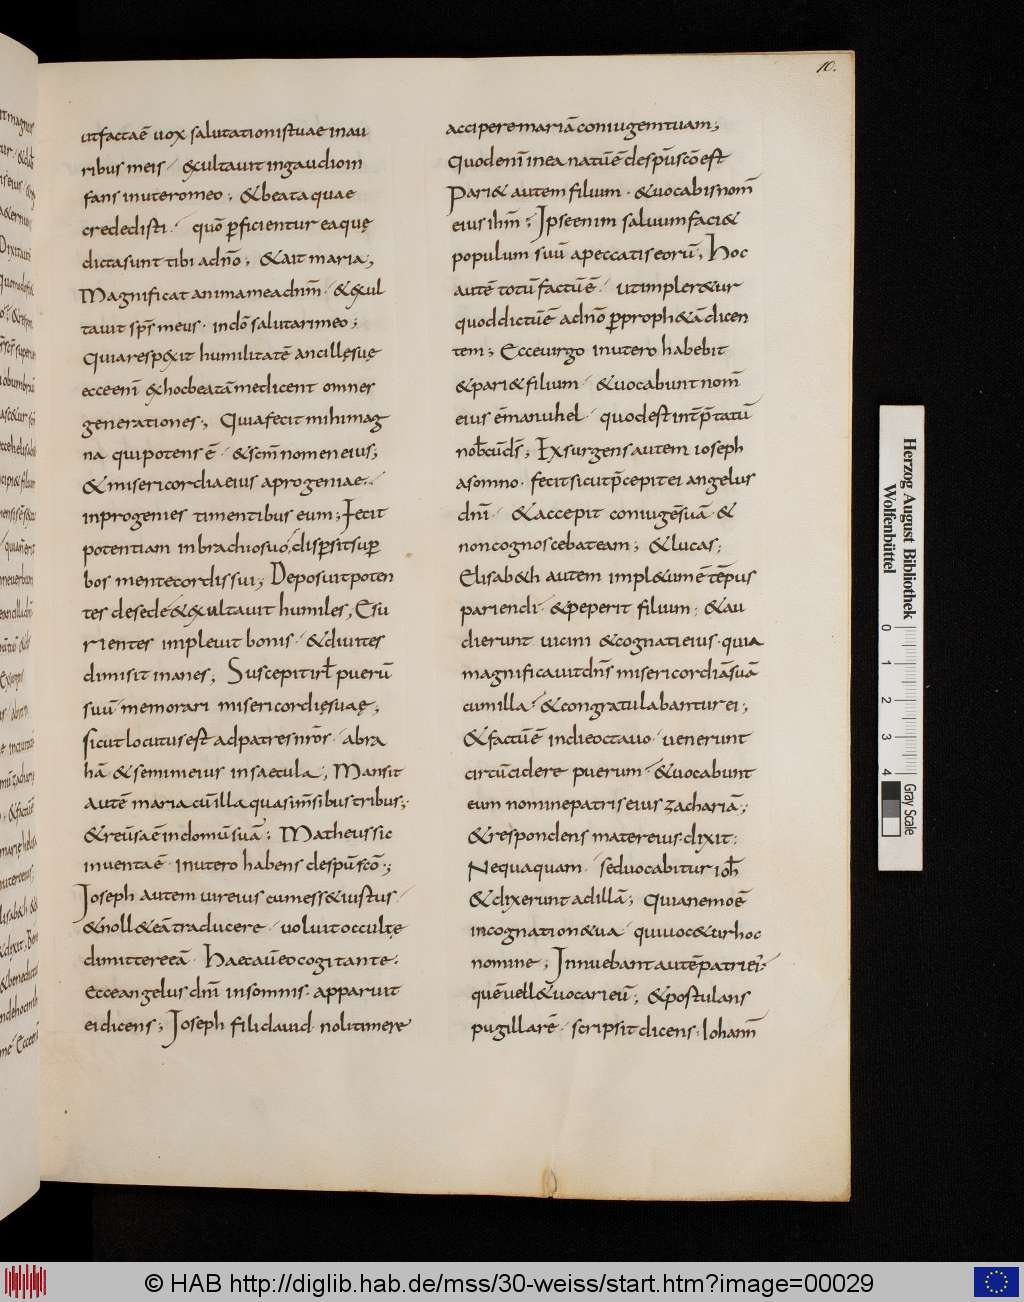 10.
ut facta ē uox salutationis tuae in au
ribus meis · exultauit in gaudio in
fans in utero meo ; & beata quae
credidisti · quō ꝑficientur ea quę
dicta sunt tibi a dn̄o ; & ait maria ;
Magnificat anima mea dn̄m · & exul
tauit sp̄s meus · in dō salutari meo ;
Quia respexit humilitatē ancillę suę
ecce enī ex hoc beatā me dicent omnes
generationes ; Quia fecit mihi mag
na qui potens ē · & sc̄m nomen eius ;
& misericordia eius a progeniae
in progenies timentibus eum ; Fecit
potentiam in brachio suo, disꝑsit suꝑ
bos mente cordis sui ; Deposuit poten
tes de sede & exultauit humiles, Esu
rientes impleuit bonis · & diuites
dimisit inanes ; Suscepit isrł puerū
suū memorari misericordię suaę ;
sicut locutus est ad patres nr̄os · abra
hā & semini eius in saecula ; Mansit
autē maria cū illa quasi m̄sibus tribus ;
& reūsa ē in domū suā ; Matheus sic
inuenta ē · in utero habens de sp̄u sc̄o ;
Ioseph autem uir eius cum ess& iustus
& noll& eā traducere · uoluit occultę
dimittere eā · Haec aūt eo cogitante
ecce angelus dn̄i in somnis · apparuit
ei dicens ; Ioseph fili dauid · noli timere
accipere mariā coniugem tuam ;
quod enī in ea natū ē de sp̄u sc̄o est
Pari& autem filium · & uocabis nom̄
eius ih̄m ; Ipse enim saluum faci&
populum suū a peccatis eorū ; Hoc
autē totū factū ē · ut impler&ur
quod dictū ē a dn̄o ꝑ proph&ā dicen
tem ; Ecce uirgo in utero habebit
& pari& filium · & uocabunt nom̄
eius ēmanuhel · quod est int̄p̄tatū
nob̄cū ds̄ ; Exsurgens autem ioseph
a somno · fecit sicut p̄cepit ei angelus
dn̄i · & accepit coniugē suā · &
non cognoscebat eam ; & lucas ;
Elisab&h autem impl&um ē tēpus
pariendi · & peperit filium ; & au
dierunt uicini & cognati eius · quia
magnificauit dn̄s misericordiā suā
cum illa · & congratulabantur ei ;
& factū ē in die octauo · uenerunt
circūcidere puerum · & uocabunt
eum nomine patris eius zachariā ;
& respondens mater eius · dixit :
Nequaquam · sed uocabitur ioh̄
& dixerunt ad illā ; Quia nemo ē
in cognatione tua · qui uoc&ur hoc
nomine ; Innuebant autē patri ei᷒
quē uell& uocari eū ; & postulans
pugillarē · scripsit dicens · Iohann̄
Herzog August Bibliothek
Wolfenbüttel
0 1 2 3 4
Gray Scale
© HAB http://diglib.hab.de/mss/30-weiss/start.htm?image=00029